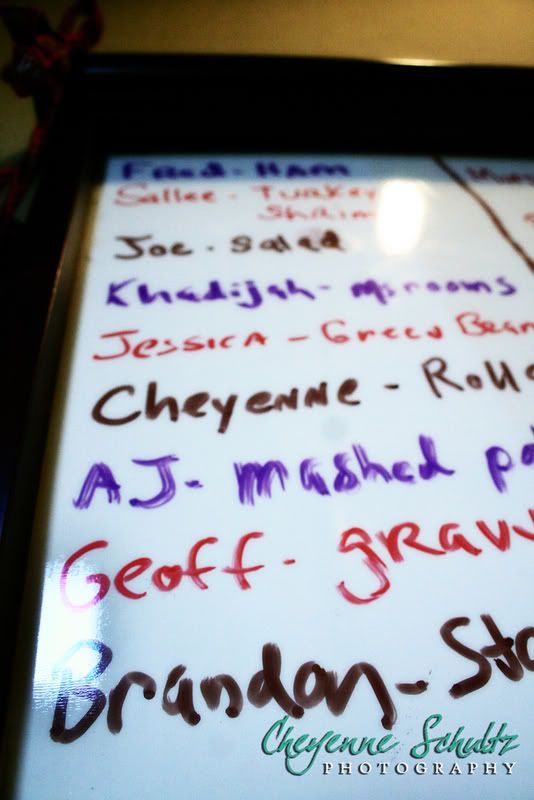 Ham
Sallee - Turkey
Joe - Salad
Khadijah - msrooms
Jessica - Green Bean
Cheyenne - Roll
AJ - mashed po
Geoff - gravy
Brandon - Sto
Cheyenne Schultz
PHOTOGRAPHY